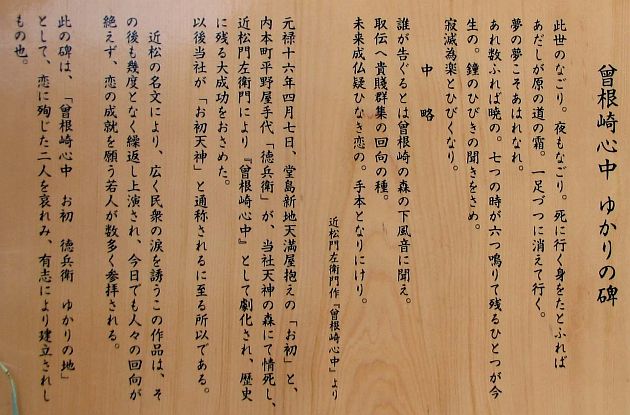 曾根崎心中 ゆかりの碑
此世のなごり。夜もなごり。死に行く身をたとふれば
あだしが原の道の霜。一足づつに消えて行く。
夢の夢こそあはれなれ。
あれ数ふれば暁の。七つの時が六つ鳴りて残るひとつが今
生の。鐘のひびきの聞きをさめ。
寂滅為楽とひびくなり。
中 略
誰が告ぐるとは曾根崎の森の下風音に聞え。
取伝へ貴賤群集の回向の種。
未来成仏疑ひなき恋の。手本となりにけり。
近松門左衛門作『曾根崎心中』より
元禄十六年四月七日、堂島新地天満屋抱えの「お初」と、
内本町平野屋手代「徳兵衛」が、当社天神の森にて情死し、
近松門左衛門により『曾根崎心中』として劇化され、歴史
に残る大成功をおさめた。
以後当社が「お初天神」と通称されるに至る所以である。
近松の名文により、広く民衆の涙を誘うこの作品は、そ
の後も幾度となく繰返し上演され、今日でも人々の回向が
絶えず、恋の成就を願う若人が数多く参拝される。
此の碑は、「曾根崎心中 お初 徳兵衛 ゆかりの地」
として、恋に殉じた二人を哀れみ、有志により建立されし
もの也。